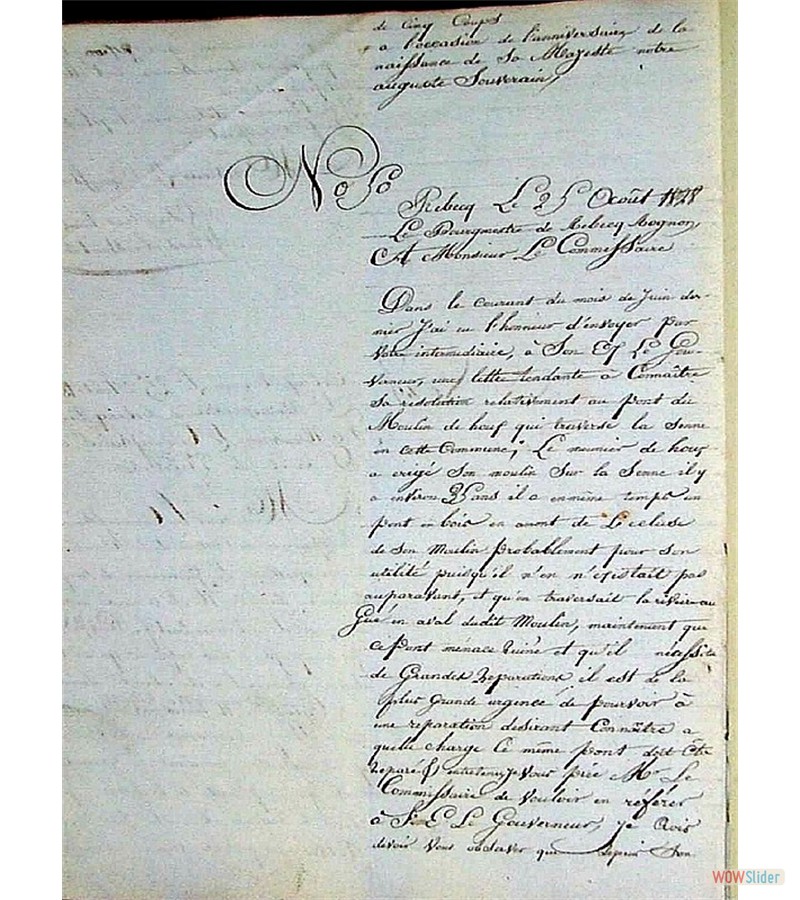 de Cinq Coups
a l'occasion de l'anniversaire de la
naissance de Sa Majesté notre
auguste Souverain,
No 50
Rebecq Le 25 Août 1828
Le Bourgmestre de Rebecq Rognon,
A Monsieur Le Commissaire
Dans le courant du mois de Juin der-
nier J'ai eu l'honneur d'envoyer par
votre intermediaire, à Son Ex Le Gou-
verneur, une lettre tendante à Connaître
Sa résolution relativement au pont du
Moulin de houf qui traverse la Senne
en cette Commune; Le meunier de houf
a erigé Son moulin Sur la Senne il y
a environ 25 ans il a enmême temps un
pont en bois en amont de L'ecluse
de Son Moulin probablement pour son
utilité puisqu'il n'en n'existait pas
auparavant, et qu'on traversait la riviere au
Gué en aval dudit Moulin, maintenent que
ce Pont ménace ruine et qu'il nécessite
de Grandes Reparations il est de la
plus Grande urgence de pourvoir à
une reparation desirant Connaître a
quelle charge Ce même pont doit être
Reparé & entretenu, Je vous prie Mr Le
Commissaire de vouloir en référer
à S. E. Le Gouverneur, je Crois
devoir Vous observer que depuis Son
WOWSlider